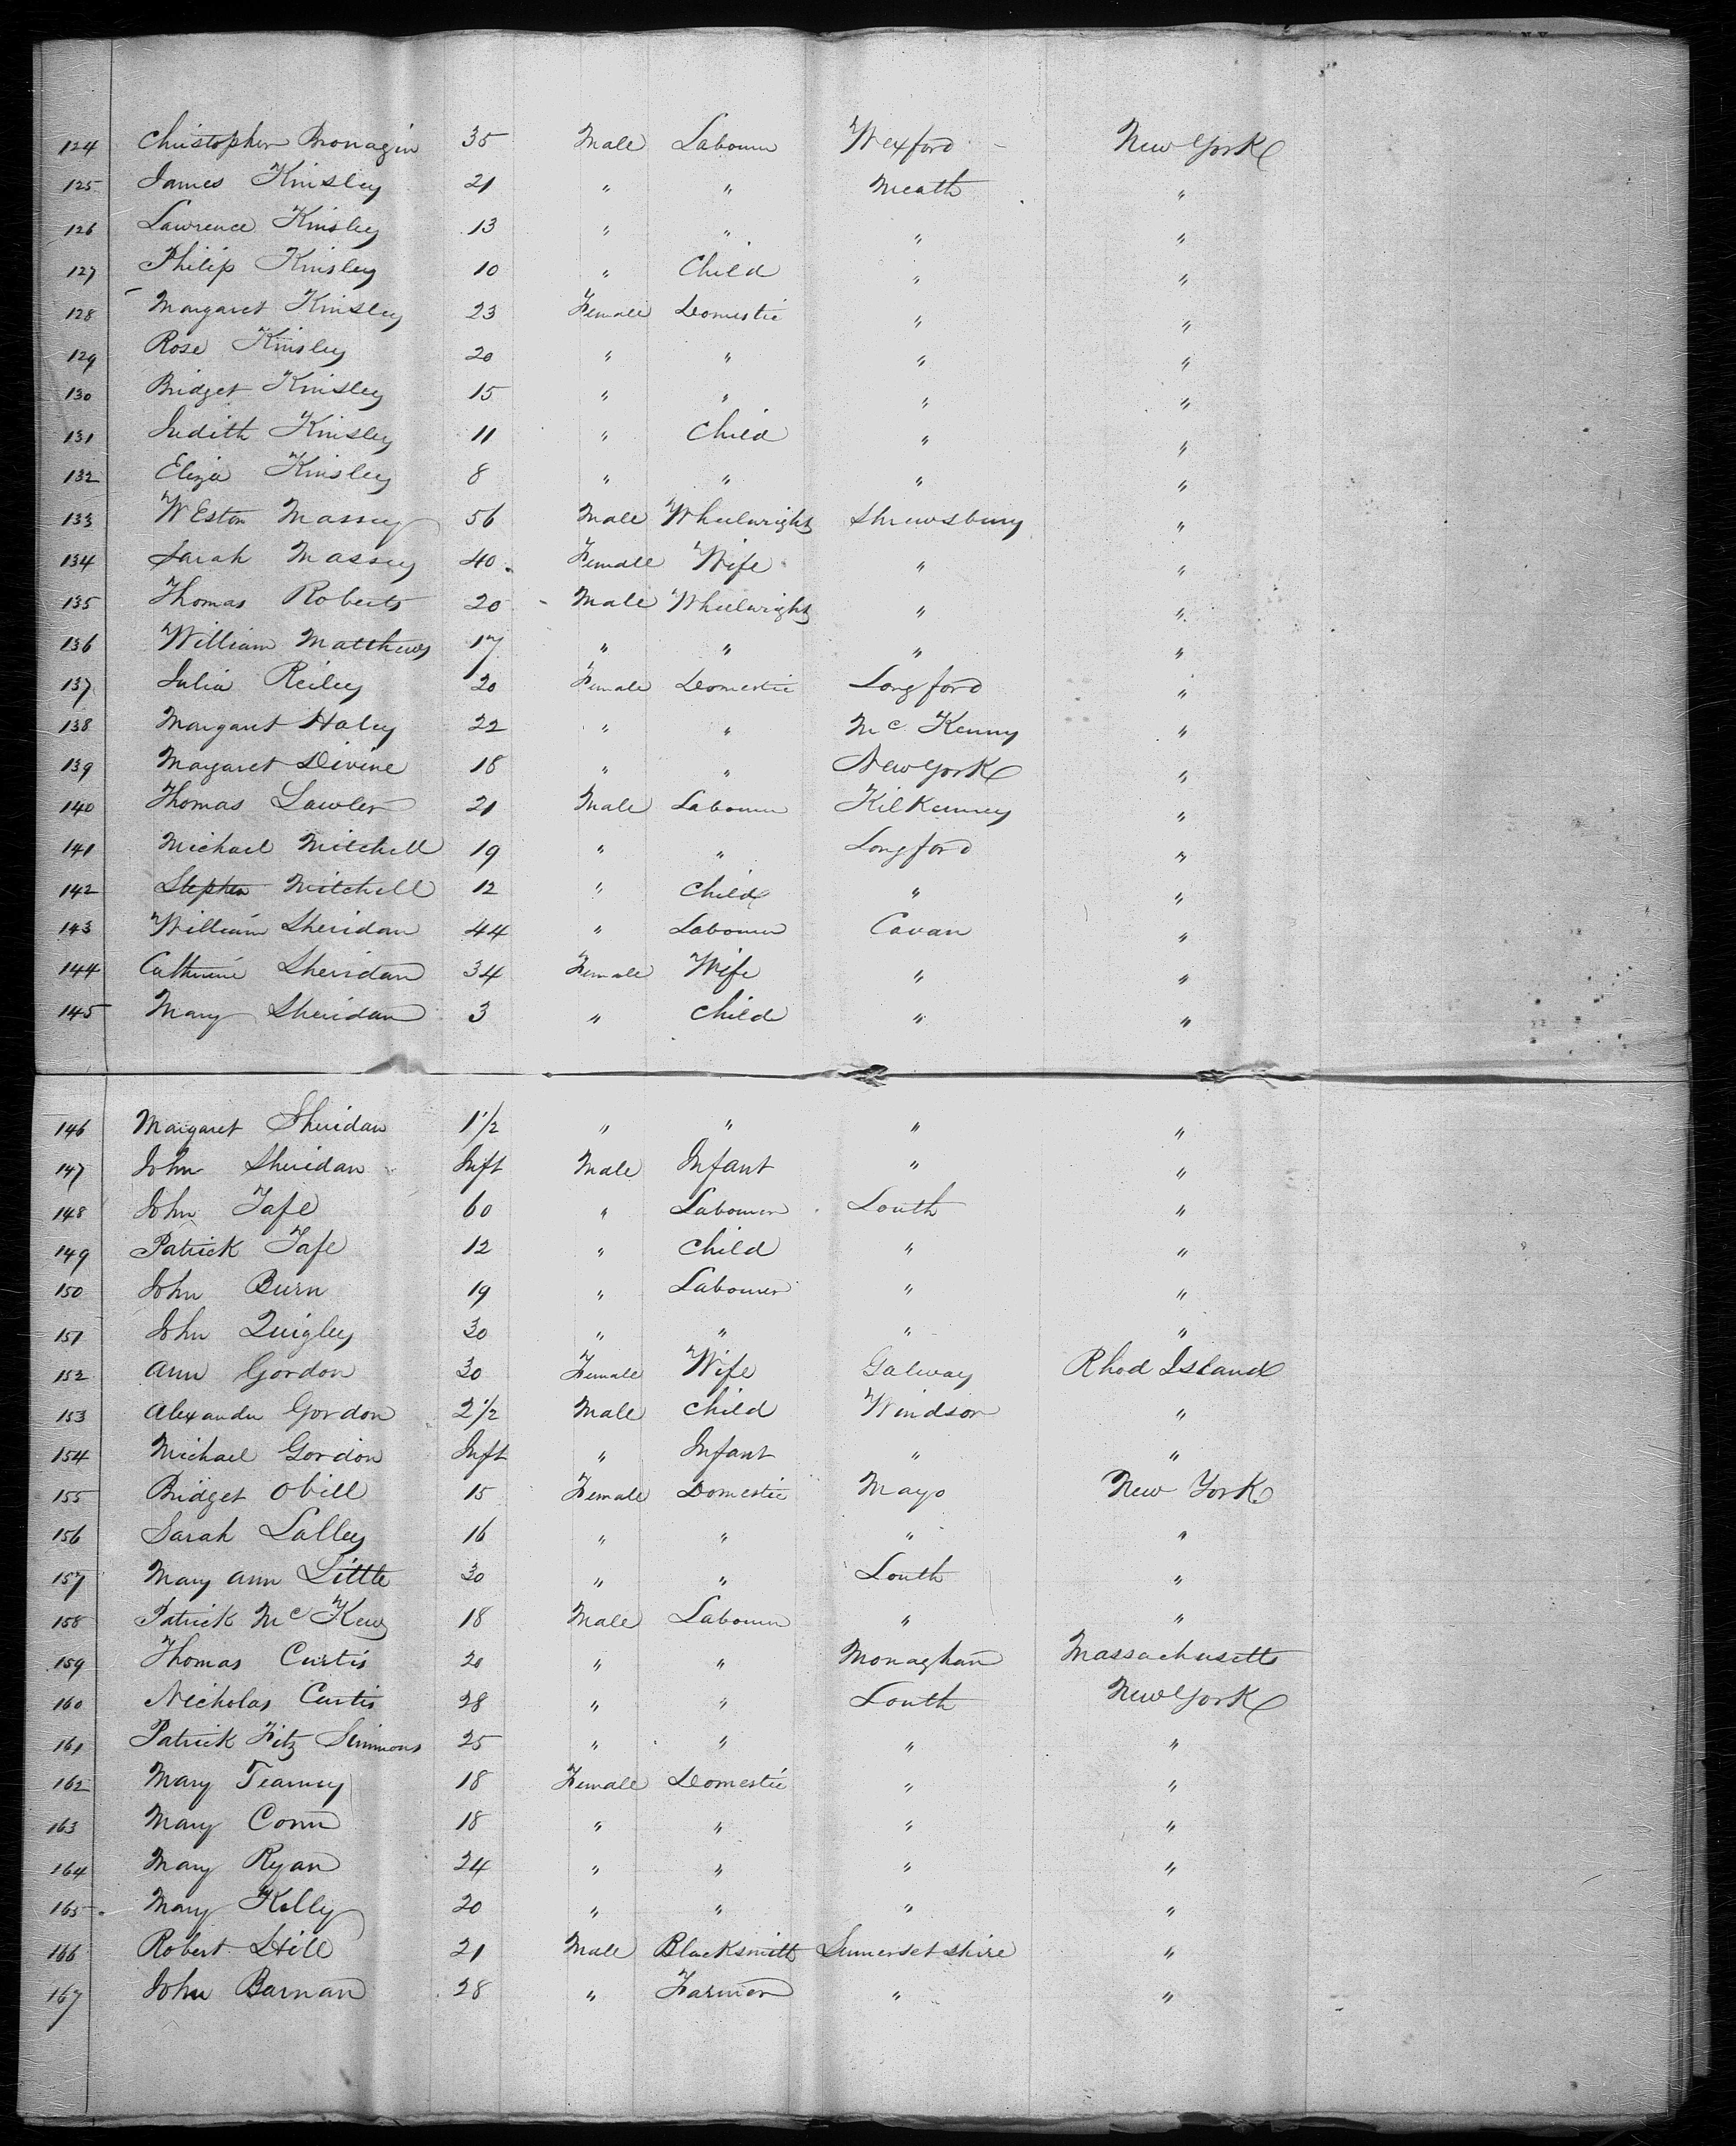 124 Christopher Bronagin 35 Male Labourer Wexford New York
125 James Kinsley 21 " " Meath "
126 Lawrence Kinsley 13 " " " "
127 Philip Kinsley 10 " Child " "
128 Margaret Kinsley 23 Female Domestic " "
129 Rose Kinsley 20 " " " "
130 Bridget Kinsley 15 " " " "
131 Judith Kinsley 11 " Child " "
132 Eliza Kinsley 8 " " " "
133 WEston Massey 56 Male Wheelwright Shrewsbury "
134 Sarah Massey 40 Female Wife " "
135 Thomas Roberts 20 Male Wheelwright " "
136 William Matthews 17 " " " "
137 Julia Reiley 20 Female Domestic Longford "
138 Margaret Haley 22 " " Mc Kenny "
139 Margaret Divine 18 " " New York "
140 Thomas Lawler 21 Male Labourer Kilkenney "
141 Michael Mitchell 19 " " Longford "
142 Stephen Mitchell 12 " Child " "
143 William Sheridan 44 " Labourer Cavan "
144 Catherine Sheridan 34 Female Wife " "
145 Mary Sheridan 3 " Child " "
146 Margaret Sheridan 1 1/2 " " " "
147 John Sheridan Inft Male Infant " "
148 John Tafe 60 " Labourer Louth "
149 Patrick Tafe 12 " Child " "
150 John Burn 19 " Labourer " "
151 John Quigley 30 " " " "
152 Ann Gordon 30 Female Wife Galway Rhod Island
153 Alexander Gordon 2 1/2 Male Child Windsor "
154 Michael Gordon Inft " Infant " "
155 Bridget Obill 15 Female Domestic Mayo New York
156 Sarah Lalley 16 " " " "
157 Mary Ann Little 30 " " Louth "
158 Patrick Mc Kew 18 Male Labourer " "
159 Thomas Curtis 20 " " Monaghan Massachusetts
160 Nicholas Curtis 28 " " Louth New York
161 Patrick Fitz Simmons 25 " " " "
162 Mary Tearney 18 Female Domestic " "
163 Mary Conn 18 " " " "
164 Mary Ryan 24 " " " "
165 Mary Kelly 20 " " " "
166 Robert Hill 21 Male Blacksmith Sumerset shire "
167 John Barnan 28 " Farmer " "